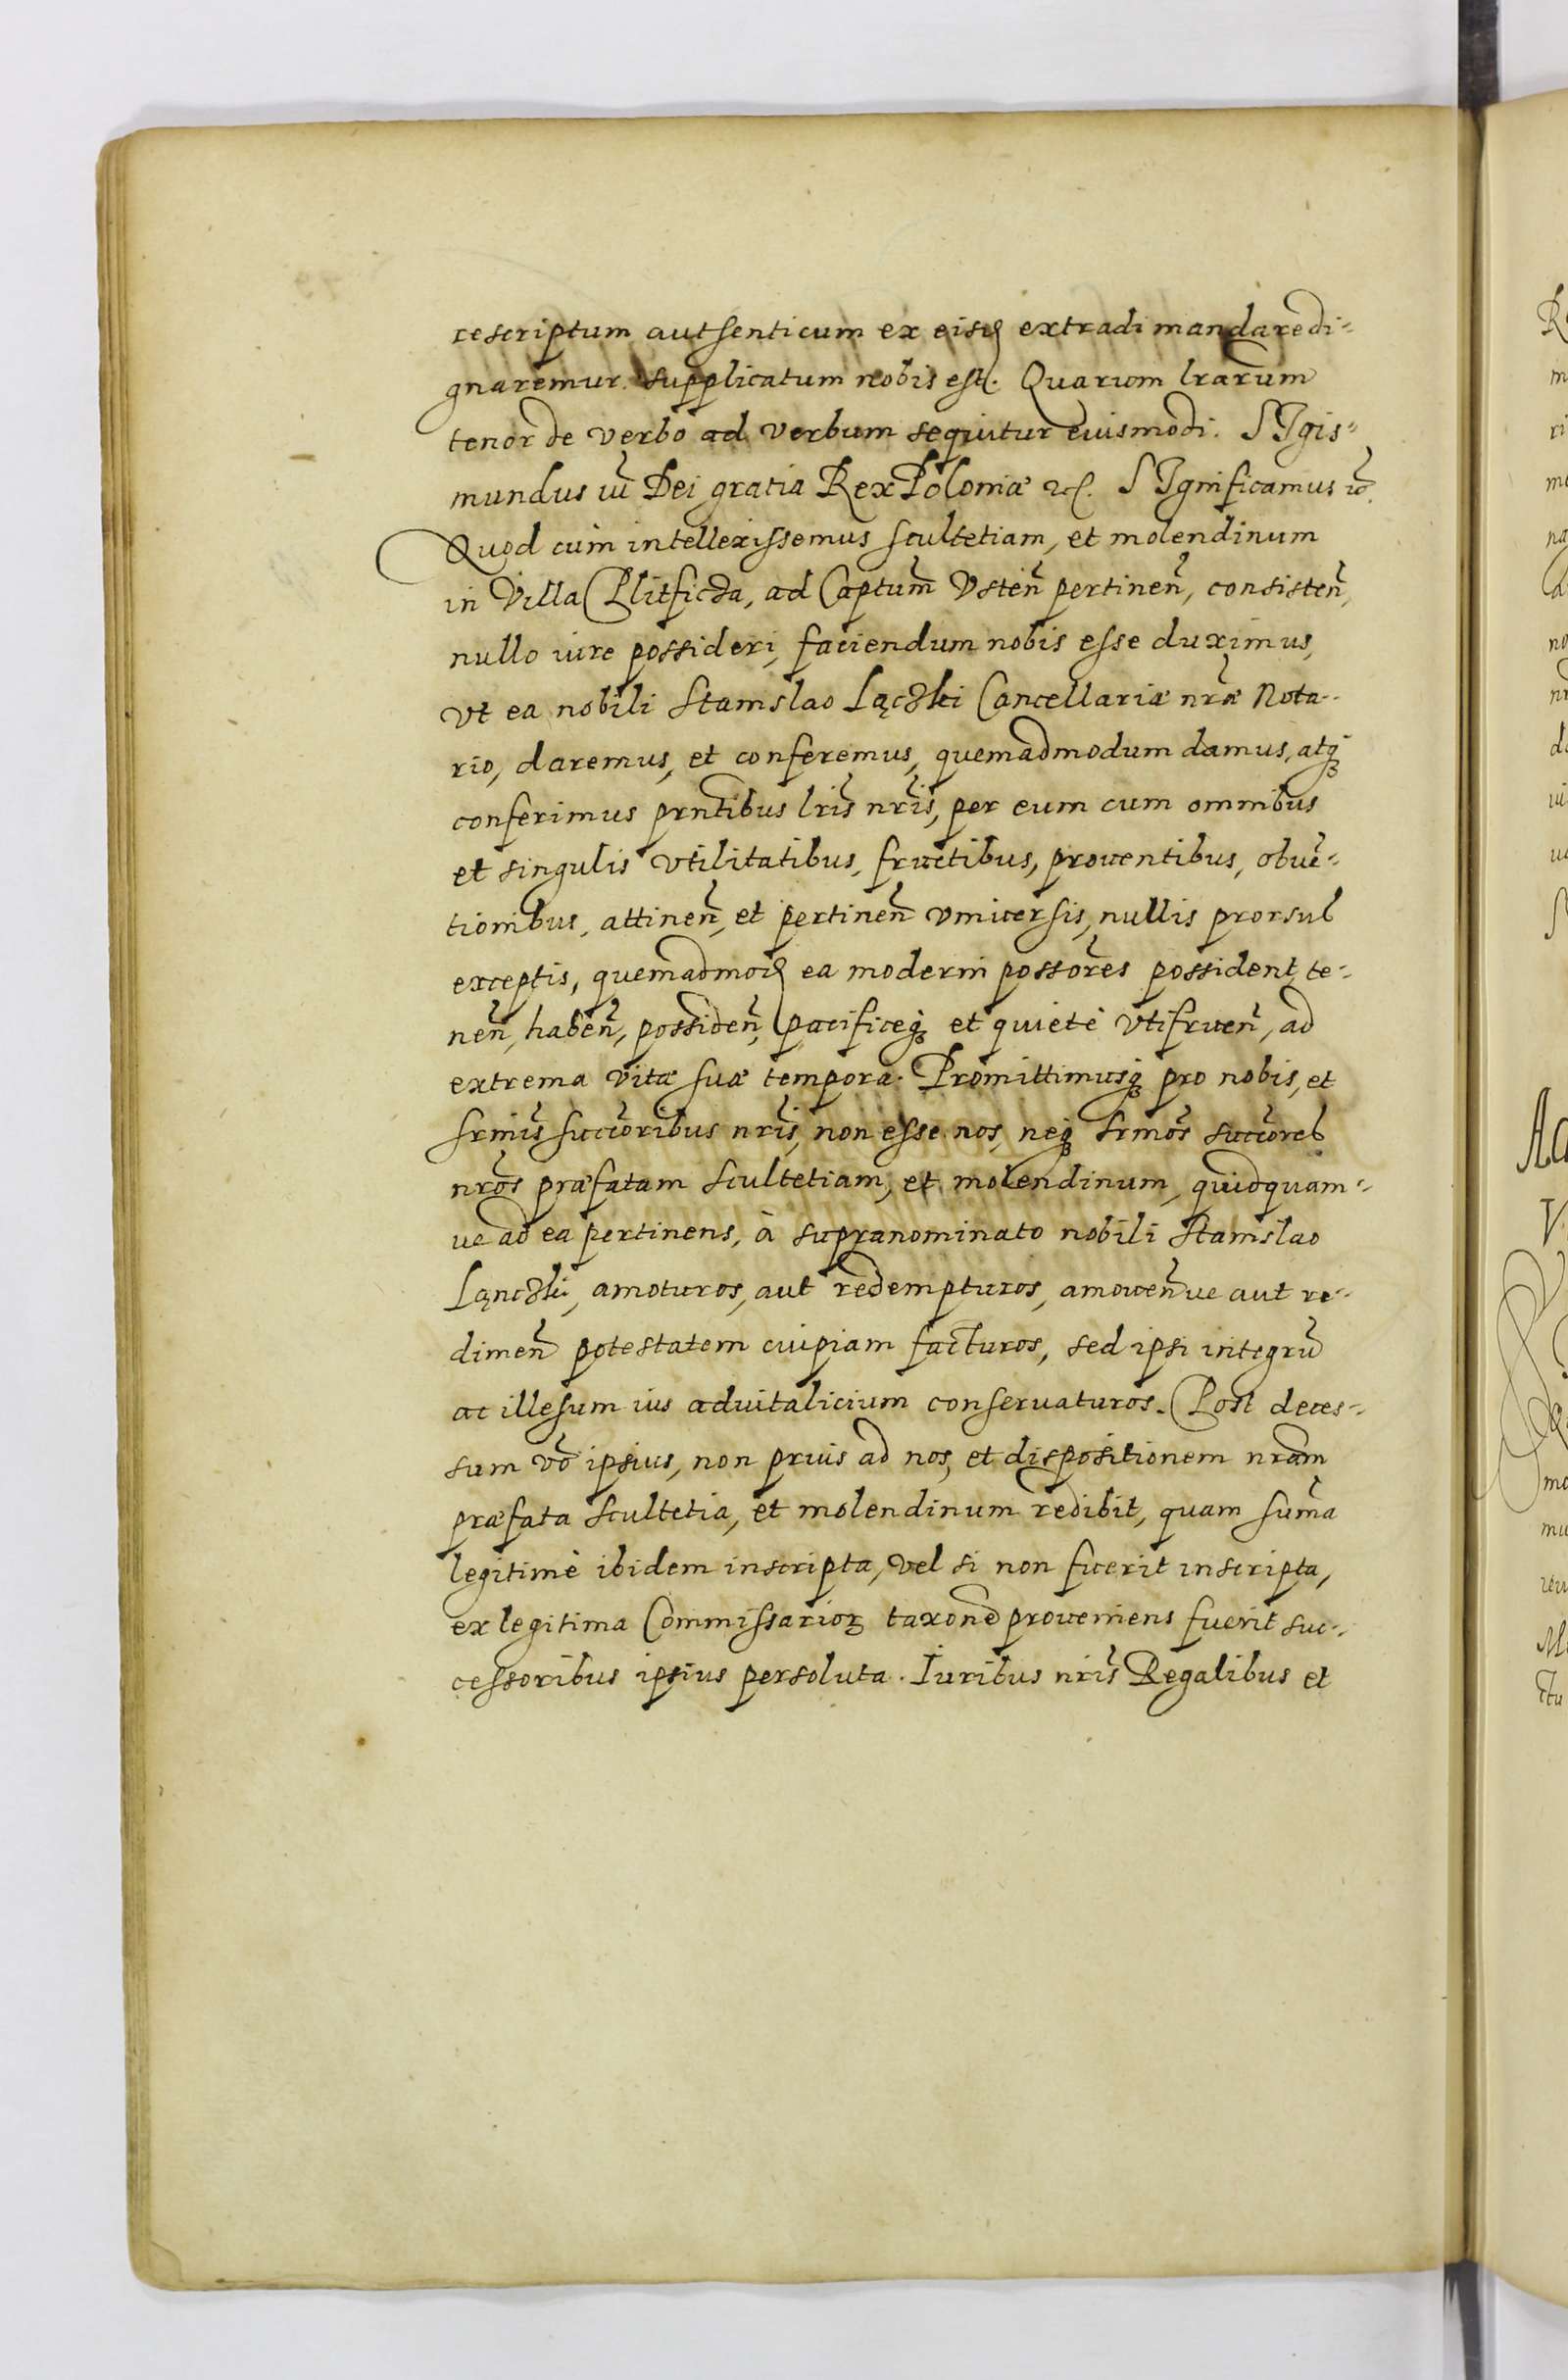 rescriptum authenticum ex eisd extradi mandare di-
gnaremur. supplicatum nobis est. Quarum lrarum
tenor de verbo ad verbum sequitur eiusmodi. SIgis-
mundus iii Dei gratia Rex Poloniæ etc. SIgnificamus
Quod cùm intellexissemus scultetiam, et molendinum
in Villa Plitficza, ad Captum Vsteñ pertineñ, consisteñ,
nullo iure possideri, faciendum nobis esse duximus,
vt ea nobili Stanislao Lączki Cancellariæ nræ Nota-
rio, daremus, et conferemus, quemadmodum damus, atq́
conferimus prntibus lris nris, per eum cum omnibus
et singulis vtilitatibus, fructibus, prouentibus, obuẽ-
tionibus, attineñ, et pertineñ vniuersis, nullis prorsus
exceptis, quemadmod ea moderni possores possident, te-
neñ, habeñ, possideñ, pacificeq́ et quietè vtifrueñ, ad
extrema vitæ suæ tempora. Promittimusq́ pro nobis, et
srmis succoribus nris, non esse nos, neq́ srmos succores
nros præfatam scultetiam, et molendinum, quidquam-
ue ad ea pertinens, à supranominato nobili Stanislao
Lanczki, amoturos, aut redempturos, amoueñue aut re-
dimeñ potestatem cuipiam facturos, sed ipsi integrũ
ac illesum ius aduitalicium conseruaturos. Post deces-
sum vo ipsius, non prius ad nos, et dispositionem nram
præfata scultetia, et molendinum redibit, quam suma
legitimè ibidem inscripta, vel si non fuerit inscripta,
ex legitima Commissarioꝝ taxone proueniens fuerit suc-
cessoribus ipsius persoluta. Iuribus nris Regalibus et